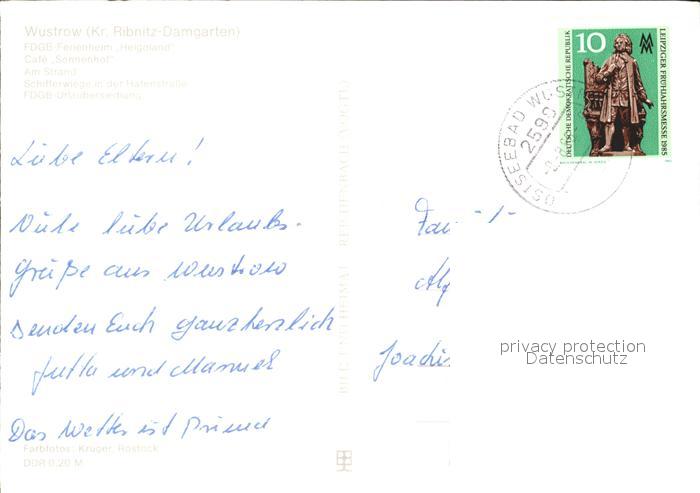 Wustrow (Kr. Ribnitz-Damgarten)
FDGB-Ferienheim „Helgoland“
Café „Sonnenhof“
Am Strand
Schifferwiege in der Hafenstraße
FDGB-Urlaubersiedlung
Liebe Eltern!
Viele liebe Urlaubs-
grüße aus Wustrow
senden Euch ganz herzlich
Jutta und Manuel
Das Wetter ist Prima
Farbfotos: Krüger, Rostock
DDR 0,20 M
BILD UND HEIMAT REICHENBACH (VOGTL)
10
DEUTSCHE DEMOKRATISCHE REPUBLIK
LEIPZIGER FRÜHJAHRSMESSE 1985
OSTSEEBAD WUST
2598
Fam
Joachi
privacy protection
Datenschutz